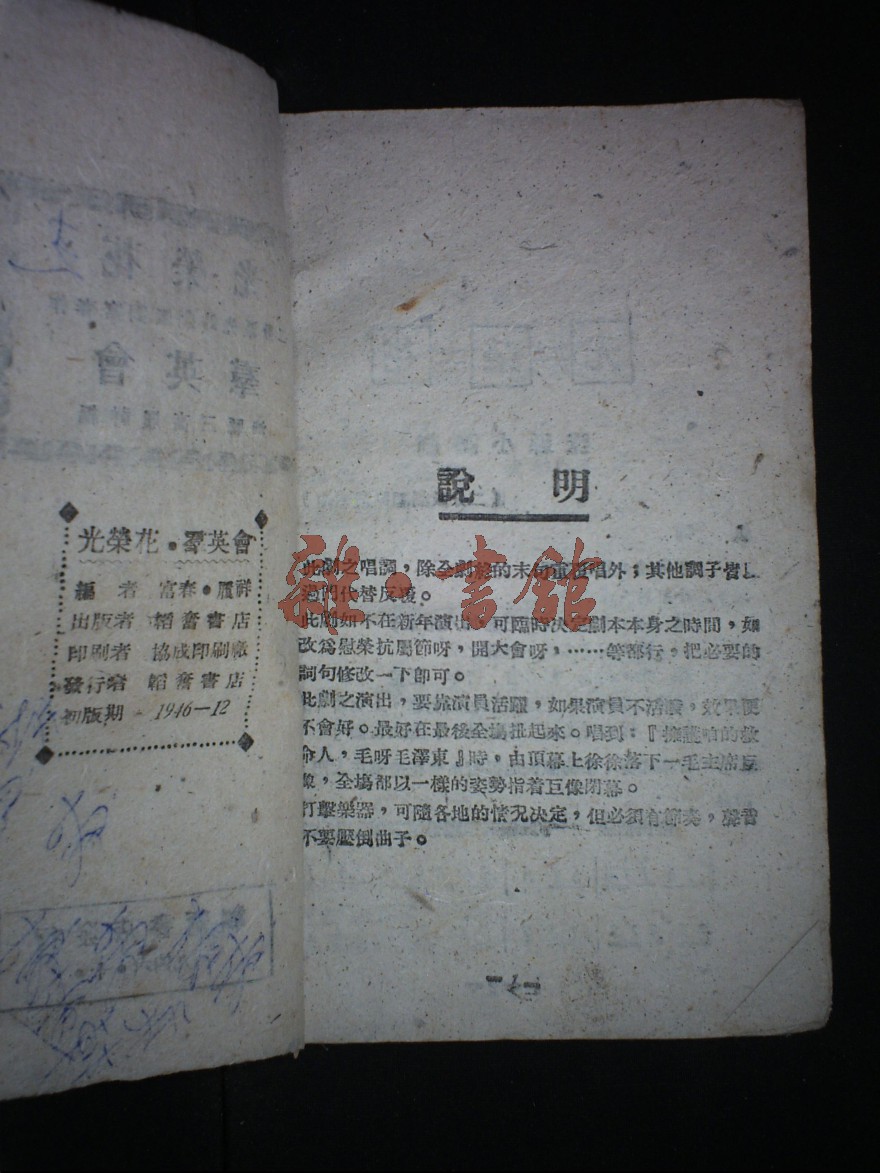 光榮花·羣英會
編者 富春·履祥
出版者 韜奮書店
印刷者 協成印刷廠
發行者 韜奮書店
初版期 1946—12
說明
此劇之唱調，除全劇終的末句重複唱外；其他調子皆以
過門代替反覆。
此劇如不在新年演出，可臨時決定劇本本身之時間，如
改為慰榮抗屬節呀，開大會呀，……等都行，把必要的
詞句修改一下即可。
此劇之演出，要靠演員活躍，如果演員不活躍，效果便
不會好。最好在最後全塲扭起來。唱到：『擁護咱的救
命人，毛呀毛澤東』時，由頂幕上徐徐落下一毛主席巨
像，全塲都以一樣的姿勢指着巨像閉幕。
打擊樂器，可隨各地的情况决定，但必須有節奏，聲音
不要壓倒曲子。
雜·書館